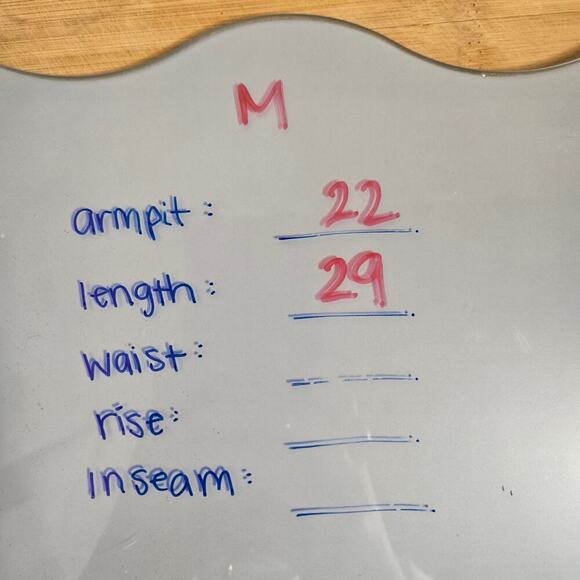 M
armpit: 22
length: 29
waist:
rise:
inseam: